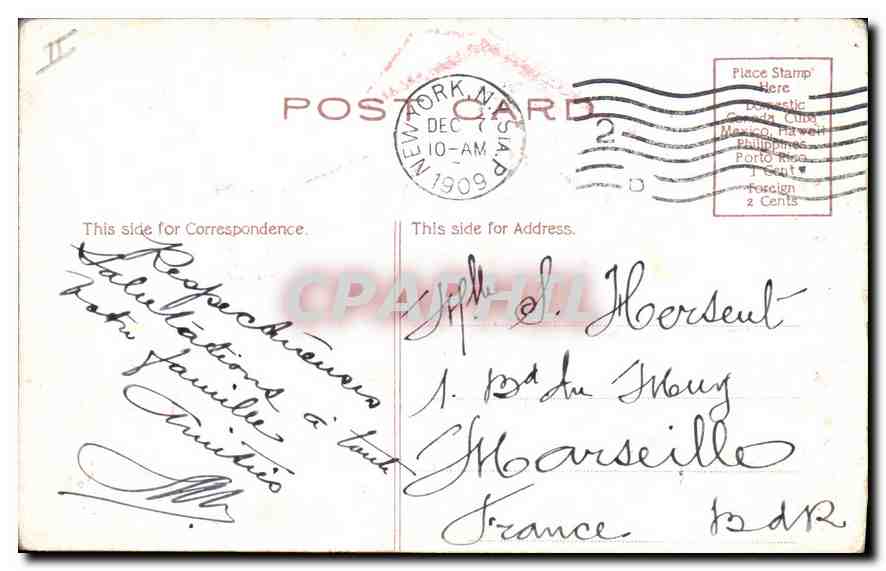 II
POST CARD
NEW YORK, N.Y. STA. P
DEC 7
10-AM
1909
2
D
Place Stamp
Here
Domestic
Canada, Cuba
Mexico, Hawaii
Philippines
Porto Rico
1 Cent
Foreign
2 Cents
This side for Correspondence.
This side for Address.
Respectueuses
Salutations à toute
votre famille
Amitiés
CPAPHIL
Mlle S. Hersent
1. Bd du Muy
Marseille
France BdR